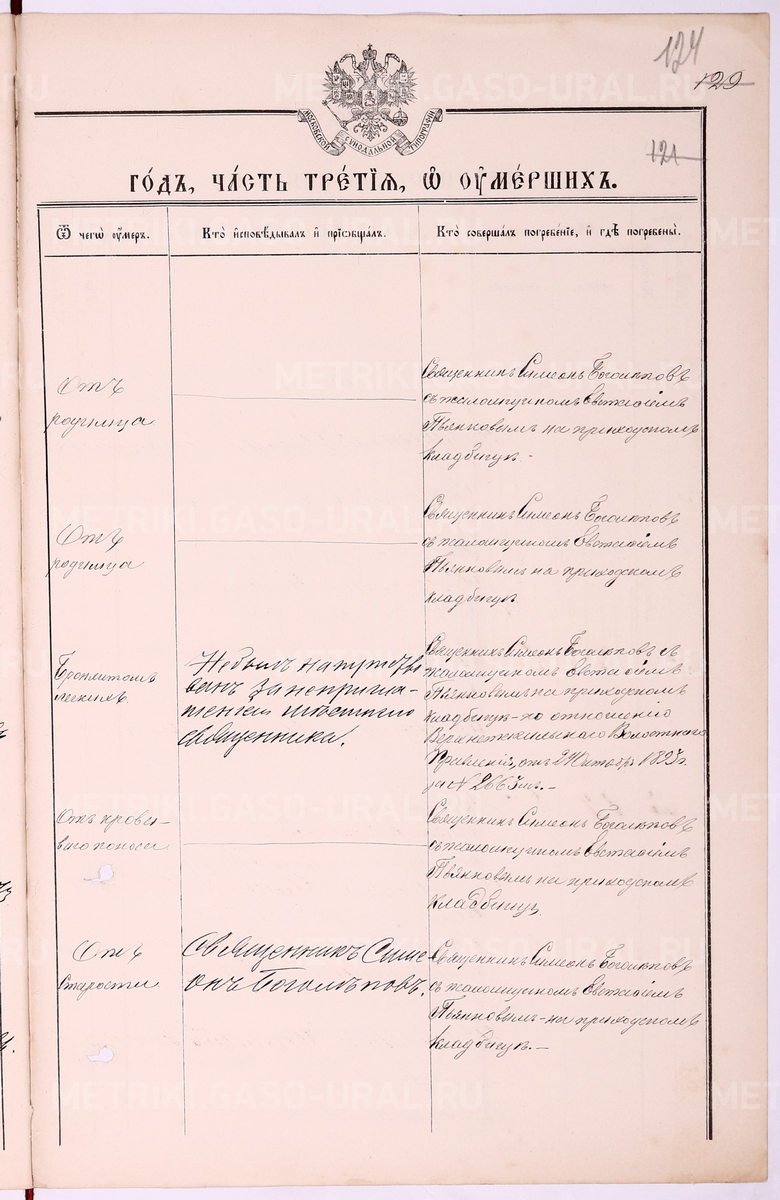 124
129
121
МОСКОВСКОЙ СУНОДАЛЬНОЙ ТИПОГРАФІИ
METRIKI.GASO-URAL.RU
го́дъ, ча́сть тре́тїѧ, ѡ҆ ᲂу҆ме́ршихъ.
Ѿ чегѡ̀ ᲂу҆́меръ.
Кто̀ и҆сповѣ́дывалъ и҆ прїѡбща́лъ.
Кто̀ соверша́лъ погребе́нїе, и҆ гдѣ̀ погребены̀.
Отъ
родимца
Священникъ Симеонъ Боголѣповъ
съ псаломщикомъ Евгеніемъ
Пьянковымъ на приходскомъ
кладбищѣ. -
Отъ
родимца
Священникъ Симеонъ Боголѣповъ
съ псаломщикомъ Евгеніемъ
Пьянковымъ на приходскомъ
кладбищѣ.
легкихъ.
Не былъ напутство
ванъ за неприглаше-
ніемъ мѣстнаго
священника.
Священникъ Симеонъ Боголѣповъ съ
псаломщикомъ Евгеніемъ
Пьянковымъ на приходскомъ
кладбищѣ - по отношенію
Волостнаго
Правленія, отъ 24 Октября 1893 г.
за № 2663мъ. -
Отъ крова-
ваго поноса
Священникъ Симеонъ Боголѣповъ
съ псаломщикомъ Евгеніемъ
Пьянковымъ на приходскомъ
кладбищѣ.
Отъ
старости
Священникъ Симе
онъ Боголѣповъ.
Священникъ Симеонъ Боголѣповъ
съ псаломщикомъ Евгеніемъ
Пьянковымъ - на приходскомъ
кладбищѣ. -
METRIKI.GASO-URAL.RU